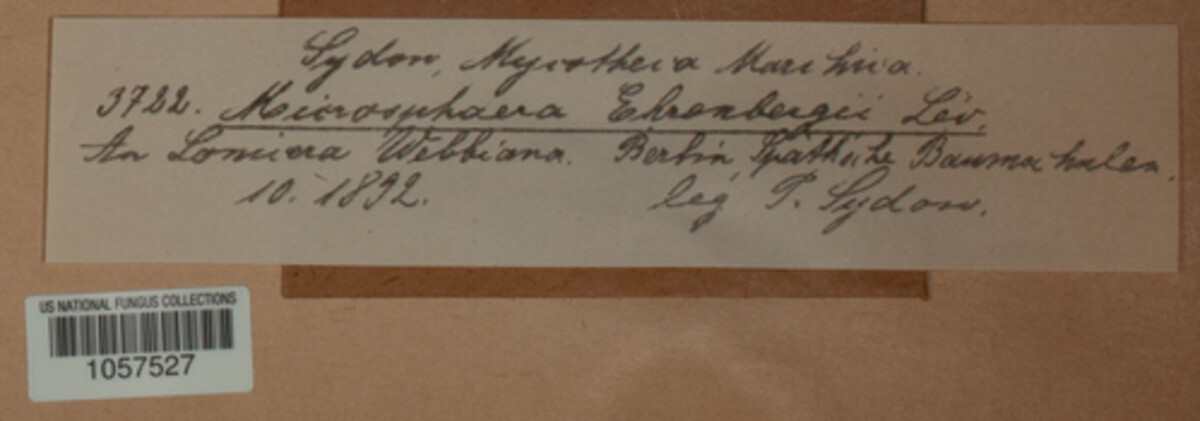 Sydow, Mycotheca Marchica.
3722. Microsphaera Ehrenbergii Lév.
An Lonicera Webbiana. Berlin, Späth'sche Baumschulen.
10. 1892. leg P. Sydow.
US NATIONAL FUNGUS COLLECTIONS
1057527